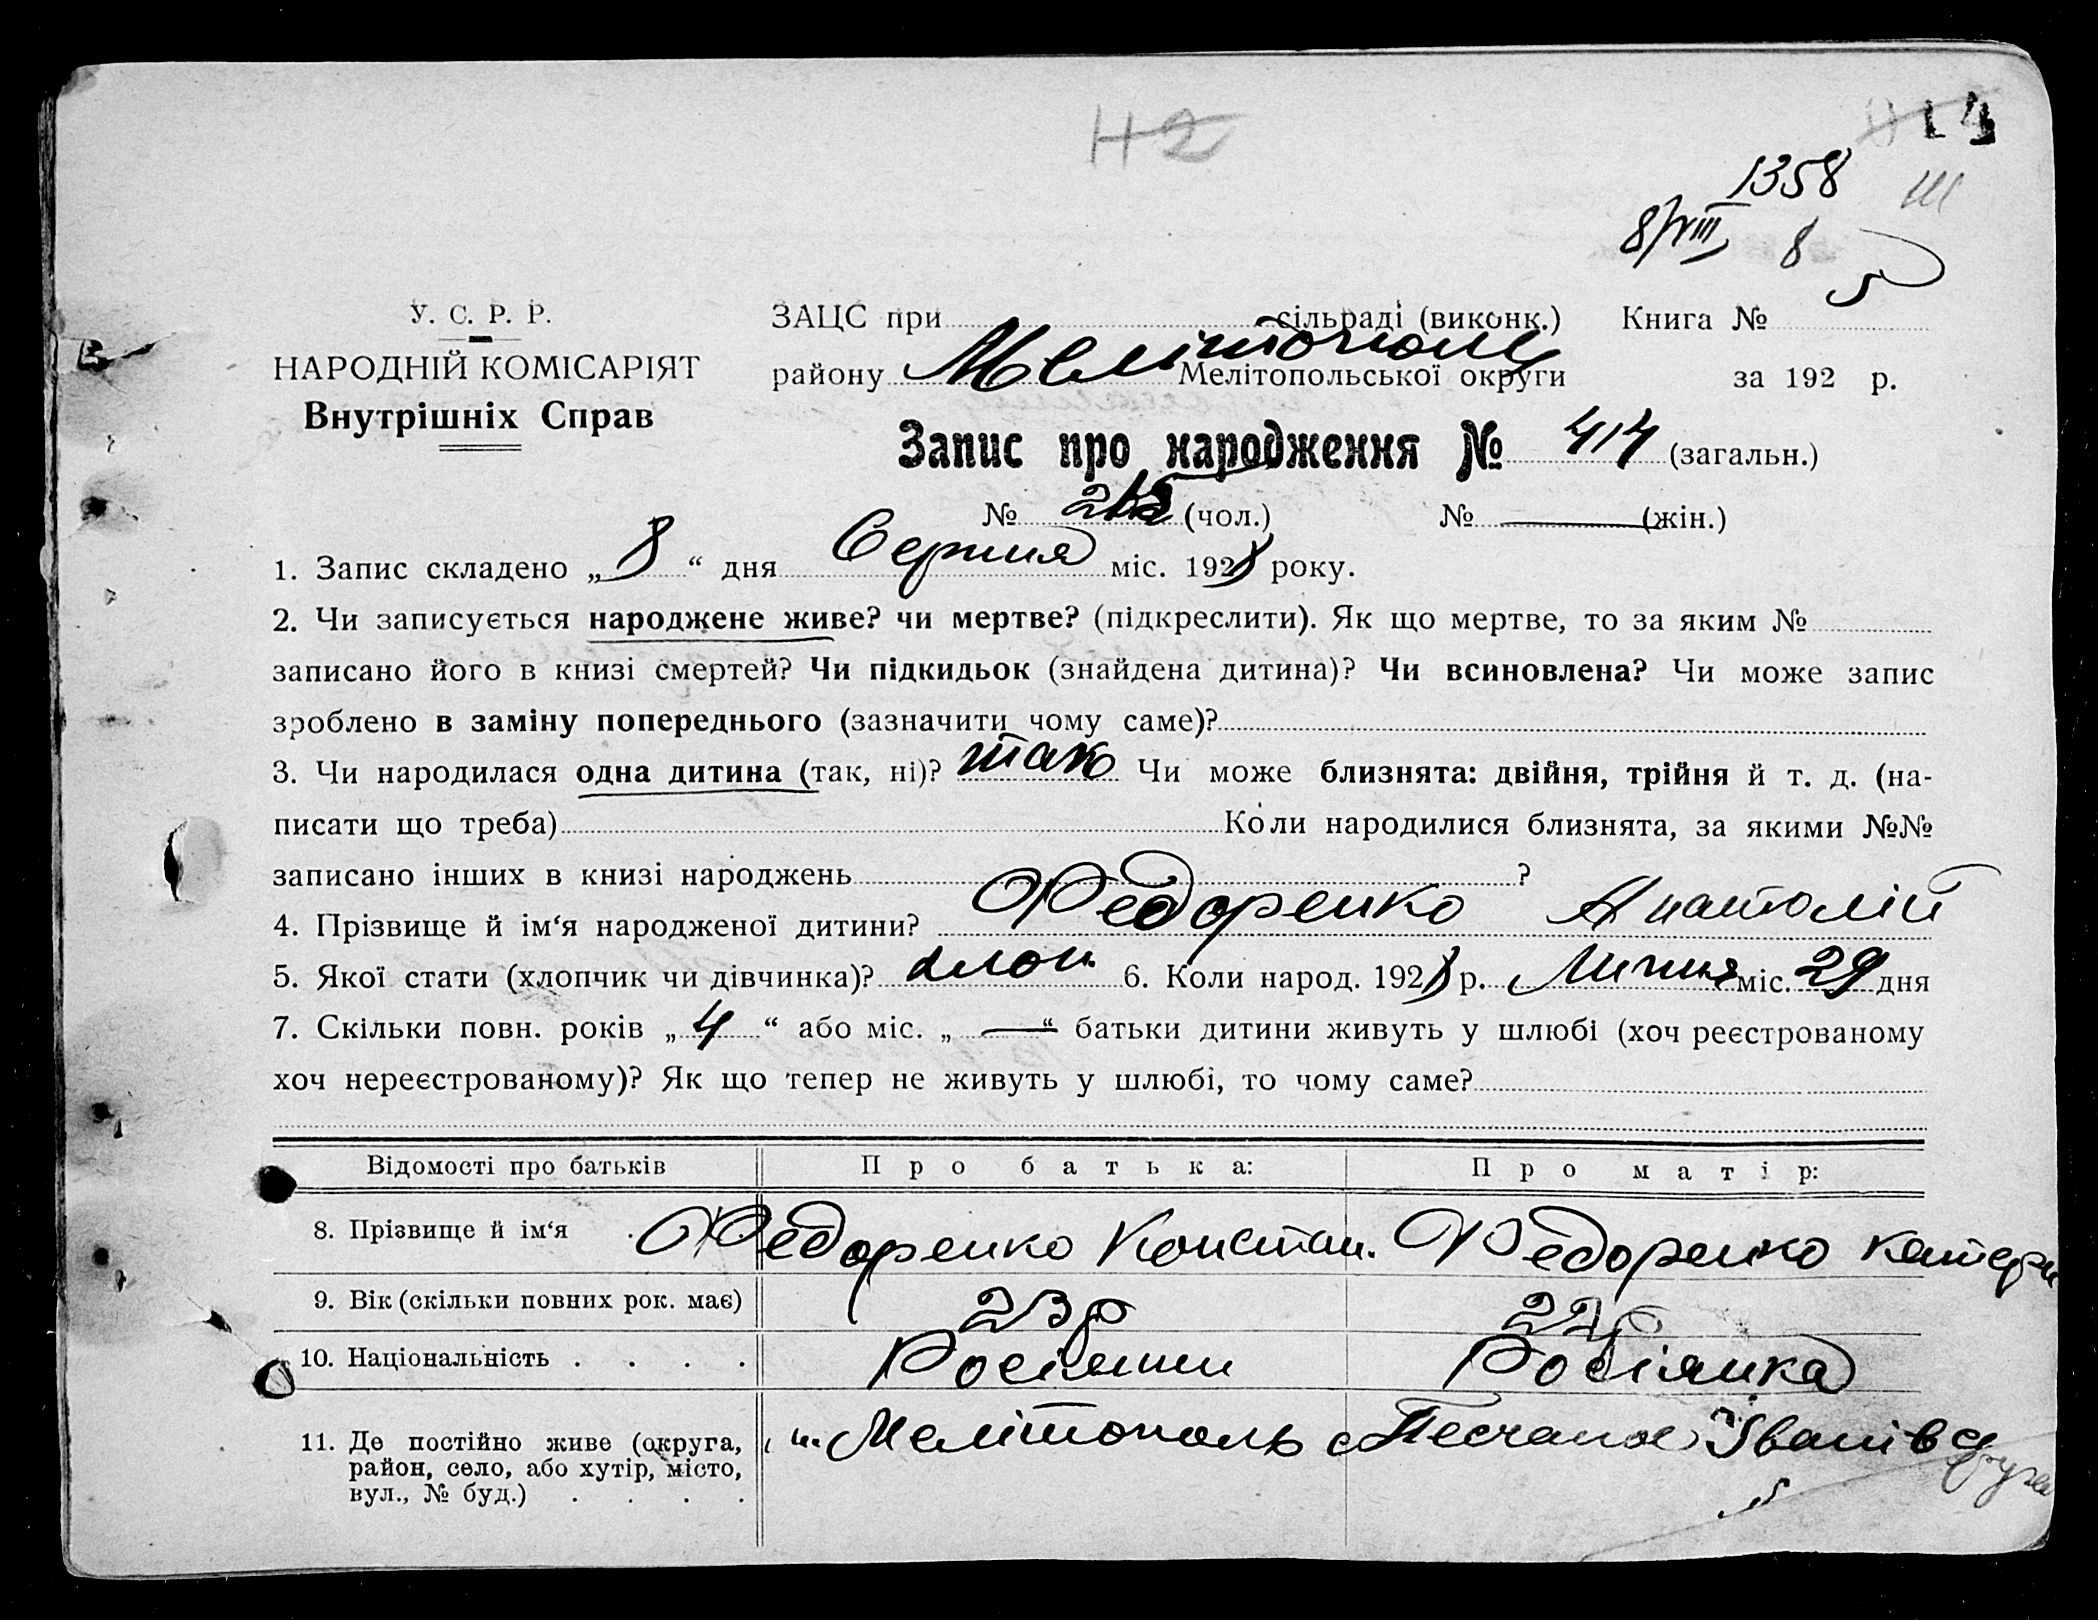 Н2
14
1358
8/VIII 8
5
У. С. Р. Р.
НАРОДНІЙ КОМІСАРІЯТ
Внутрішніх Справ
ЗАЦС при сільраді (виконк.) Книга №
району Мелітополь Мелітопольської округи за 192 р.
Запис про народження № 414 (загальн.)
№ (чол.) № — (жін.)
1. Запис складено „8“ дня Серпня міс. 1928 року.
2. Чи записується народжене живе? чи мертве? (підкреслити). Як що мертве, то за яким №
записано його в книзі смертей? Чи підкидьок (знайдена дитина)? Чи всиновлена? Чи може запис
зроблено в заміну попереднього (зазначити чому саме)?
3. Чи народилася одна дитина (так, ні)? так Чи може близнята: двійня, трійня й т. д. (на-
писати що треба) Коли народилися близнята, за якими №№
записано інших в книзі народжень ?
4. Прізвище й ім‘я народженої дитини? Федоренко Анатолій
5. Якої стати (хлопчик чи дівчинка)? хлоп. 6. Коли народ. 1928 р. Липня міс. 29 дня
7. Скільки повн. років „4“ або міс. „—“ батьки дитини живуть у шлюбі (хоч реєстрованому
хоч нереєстрованому)? Як що тепер не живуть у шлюбі, то чому саме?
Відомості про батьків Про батька: Про матір:
8. Прізвище й ім‘я Федоренко Констан. Федоренко Катери
9. Вік (скільки повних рок. має) 23 р 22 р
10. Національність . . . . Росіянин Росіянка
11. Де постійно живе (округа, м. Мелітополь с Песчаное Іванівс
район, село, або хутір, місто,
вул., № буд.) . . . . 5